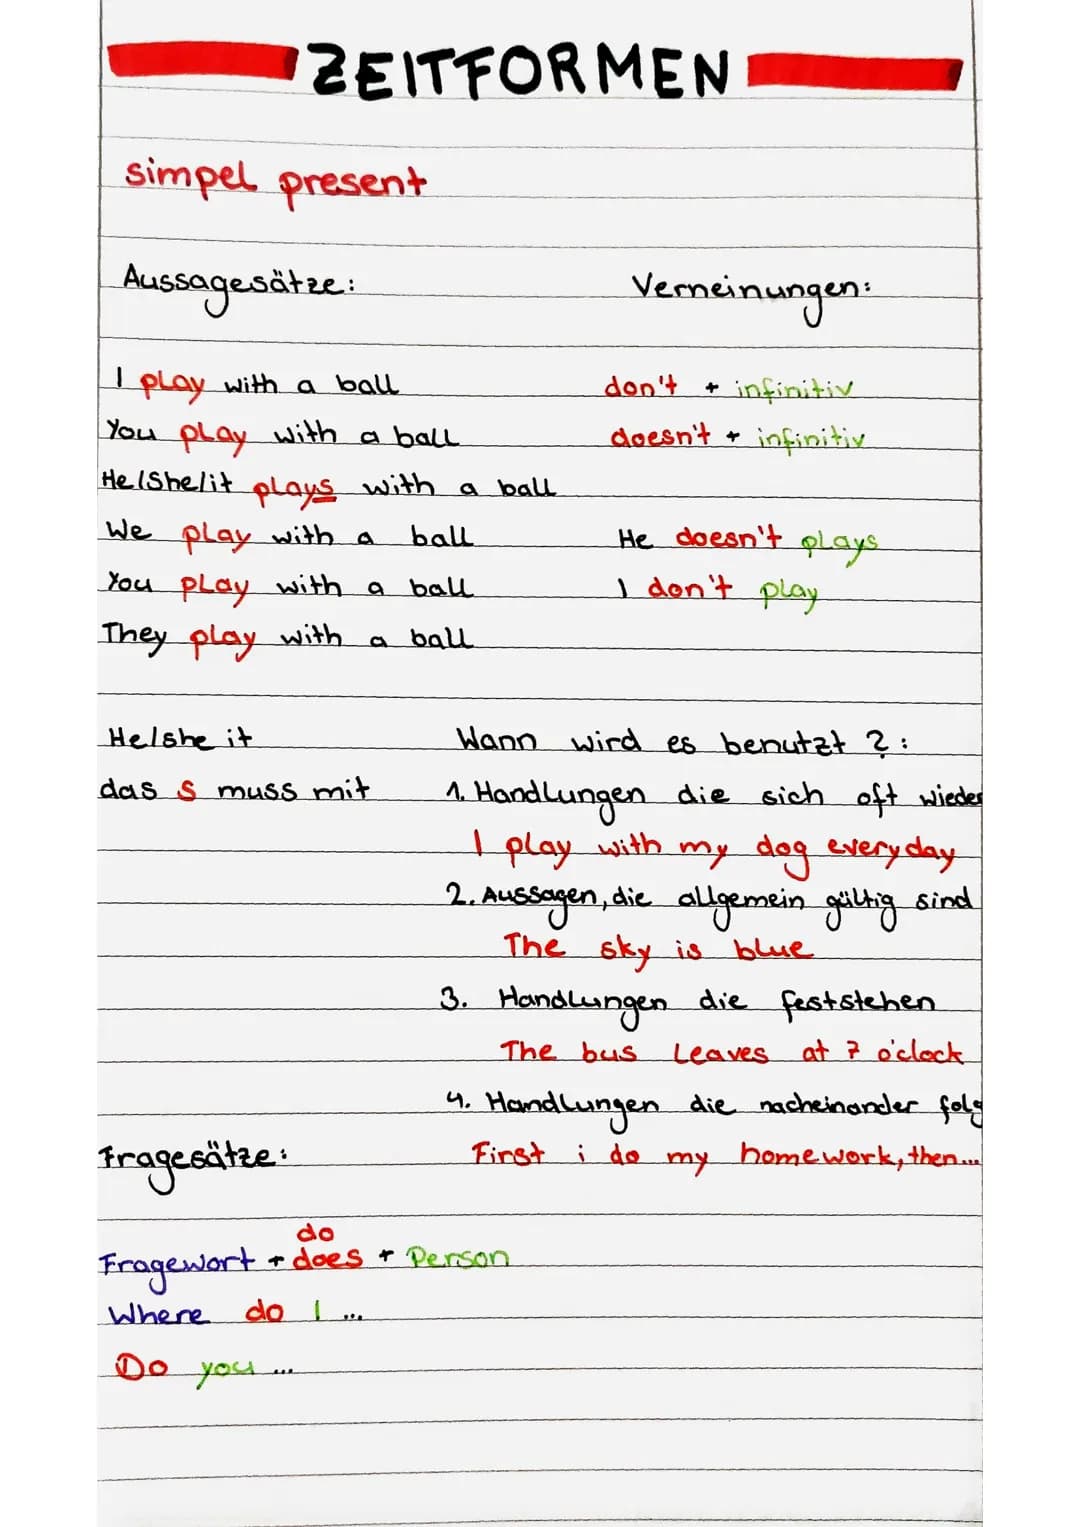 ZEITFORMEN
simpel present
Aussagesätze: Verneinungen:
I play with a ball don't + infinitiv
You play with a ball doesn't + infinitiv
He/She/it plays with a ball
We play with a ball He doesn't plays
You play with a ball I don't play
They play with a ball
He/she it Wann wird es benutzt ?:
das s muss mit 1. Handlungen die sich oft wieder
I play with my dog everyday
2. Aussagen, die allgemein gültig sind
The sky is blue
3. Handlungen die feststehen
The bus leaves at 7 o'clock
4. Handlungen die nacheinander folg
Fragesätze: First i do my homework, then...
do
Fragewort + does + Person
Where do I ...
Do you ...